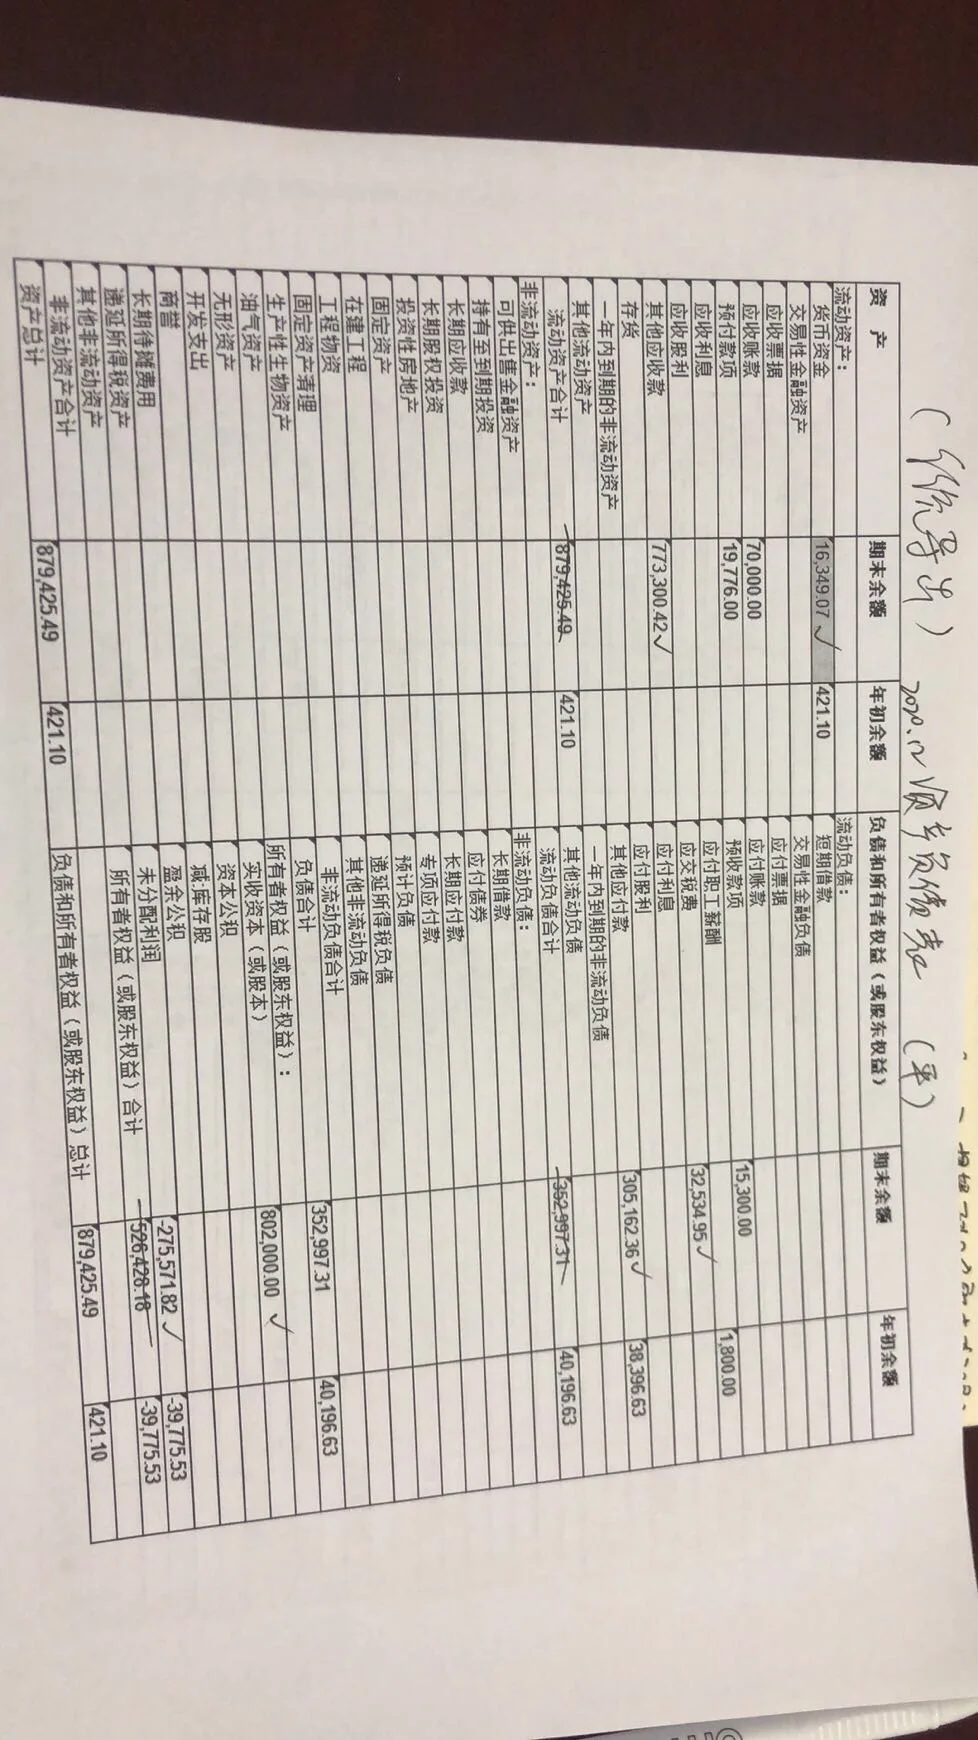 （系统导出） 2018.12 资产负债表 （平）
资 产 期末余额 年初余额 负债和所有者权益（或股东权益） 期末余额 年初余额
流动资产： 流动负债：
货币资金 16,349.07 ✓ 421.10 短期借款
交易性金融资产 交易性金融负债
应收票据 应付票据
应收账款 70,000.00 应付账款
预付款项 19,776.00 预收款项 15,300.00
应收利息 应付职工薪酬 1,800.00
应收股利 应交税费 32,534.95 ✓
其他应收款 773,300.42 ✓ 应付利息
存货 应付股利
一年内到期的非流动资产 其他应付款 305,162.36 ✓ 38,396.63
其他流动资产 一年内到期的非流动负债
其他流动负债
流动资产合计 879,425.49 421.10 流动负债合计 352,997.31 40,196.63
非流动资产： 非流动负债：
可供出售金融资产 长期借款
持有至到期投资 应付债券
长期应收款 长期应付款
长期股权投资 专项应付款
投资性房地产 预计负债
固定资产 递延所得税负债
在建工程 其他非流动负债
工程物资 非流动负债合计
固定资产清理 负债合计 352,997.31 40,196.63
生产性生物资产 所有者权益（或股东权益）：
油气资产 实收资本（或股本） 802,000.00 ✓
无形资产 资本公积
开发支出 减:库存股
商誉 盈余公积
长期待摊费用 未分配利润 -275,571.82 ✓ -39,775.53
递延所得税资产 所有者权益（或股东权益）合计 526,428.18 -39,775.53
其他非流动资产
非流动资产合计
资产总计 879,425.49 421.10 负债和所有者权益（或股东权益）总计 879,425.49 421.10